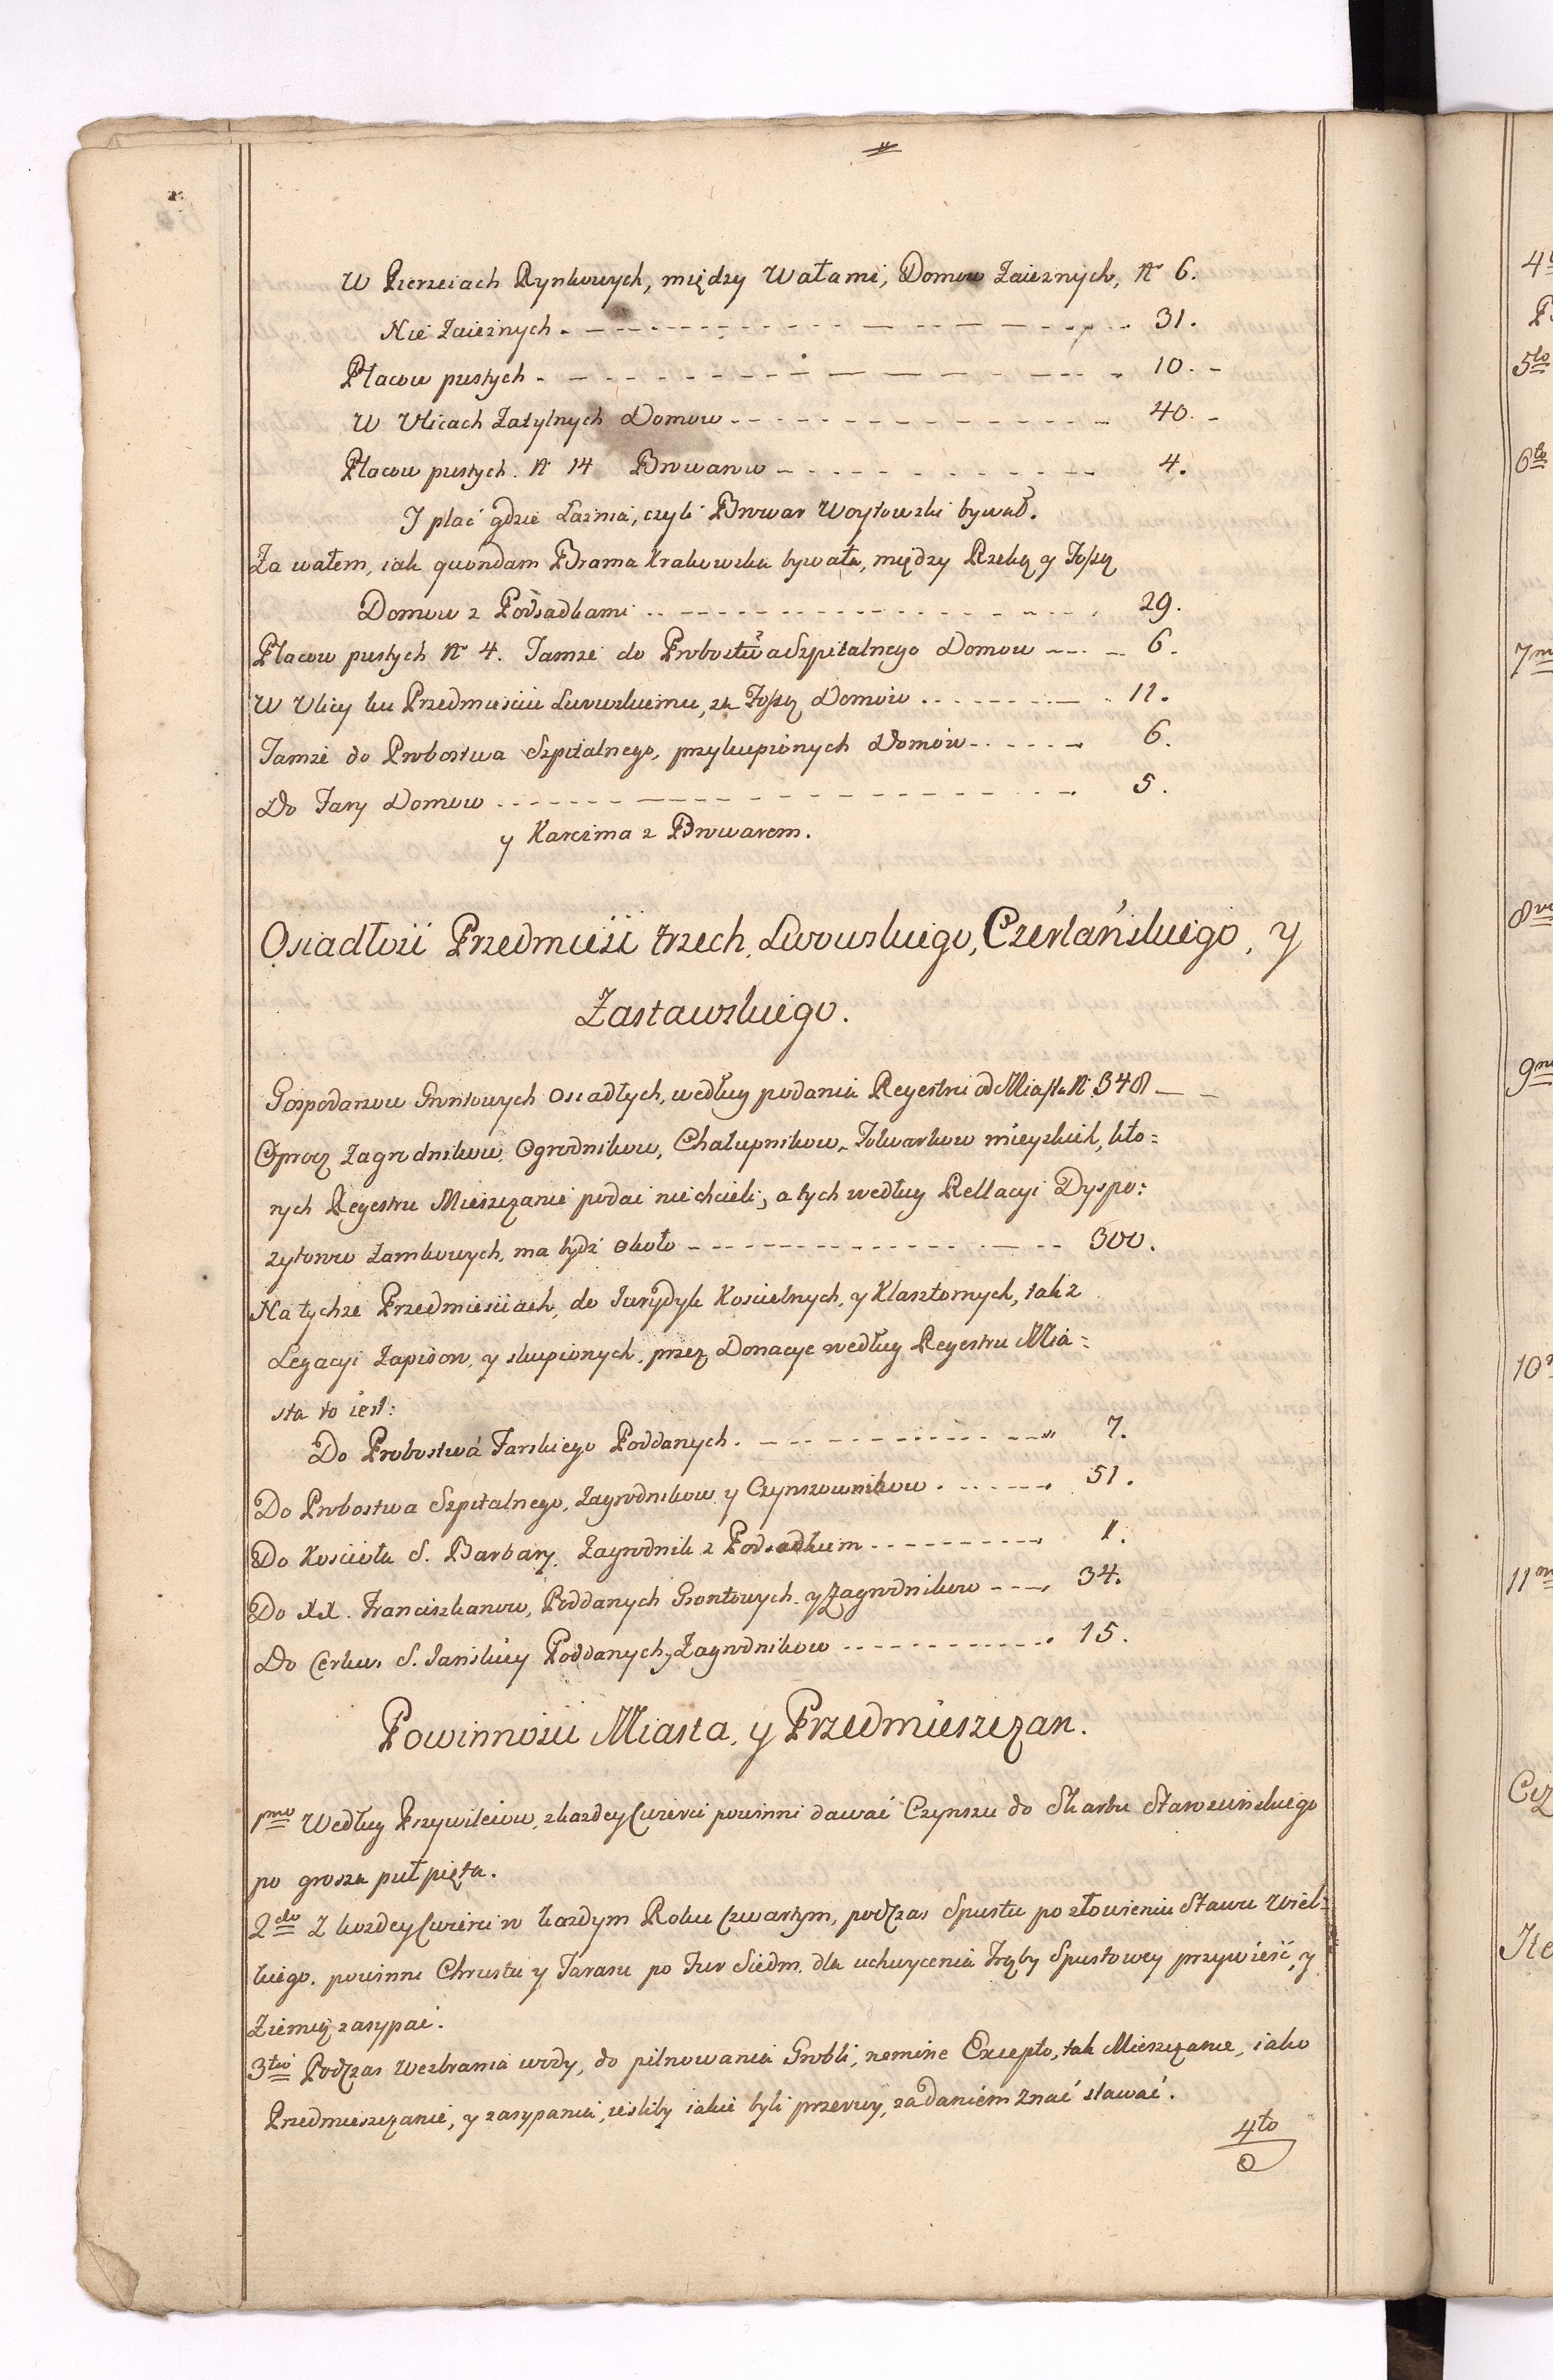 W Pierzeiach Rynkowych, między Wałami, Domow Zaieznych, N° 6.
Nie Zaieznych - - - 31.
Placow pustych - - - 10. -
W Vlicach Zatylnych Domow - - - 40. -
Placow pustych. N° 14 Browarow - - - 4.
J plac gdzie Łaznia, czyli Browar Woytowski bywał.
Za wałem, iak quondam Brama Krakowska bywała, między Rzeką y Fossą
Domow z Podsadkami - - - 29.
Placow pustych N° 4. Tamze do Probostwa Szpitalnego Domow - - - 6.
W Vlicy ku Przedmiesciu Lwowskiemu, za Fossą Domów - - - 11.
Tamze do Probostwa Szpitalnego, przykupionych Domów - - - 6.
Do Fary Domow - - - 5.
y Karczma z Browarem.
Osiadłość Przedmieść trzech, Lwowskiego, Czerlańskiego, y
Zastawskiego.
Gospodarzow Gruntowych osiadłych, według podania Regestru od Miasta N° 348 - -
Oprocz Zagrodnikow, Ogrodnikow, Chałupnikow, Folwarkow mieyskich, kto=
rych Regestru Mieszczanie podać nie chcieli, a tych według Rellacyi Dyspo=
zytorow Zamkowych, ma bydź około - - - 300.
Na tychze Przedmiesciach, do Jurydyk Koscielnych, y Klasztornych, tak z
Legacyi Zapisow, y skupionych, przez Donacye według Regestru Mia=
sta to iest:
Do Probostwa Farskiego Poddanych - - - 7.
Do Probostwa Szpitalnego, Zagrodnikow y Czynszownikow - - - 51.
Do Kościoła S. Barbary, Zagrodnik z Podsadkiem - - - 1.
Do XX. Franciszkanow, Poddanych Grontowych, y Zagrodnikow - - - 34.
Do Cerkwi S. Janskiey Poddanych, Zagrodnikow - - - 15.
Powinności Miasta, y Przedmieszczan.
1mo Według Przywileiow, z kazdey Cwierci powinni dawać Czynszu do Skarbu Starościńskiego
po grosza puł pięta.
2do Z kozdey Cwierci w kazdym Roku Czwartym, podczas Spustu po złowieniu Stawu Wiel=
kiego, powinni Chrustu y Tarasu po Fur Siedm, dla uchwycenia Trąby Spustowey przywieść, y
Ziemią zasypać.
3tio Podczas Wezbrania wody, do pilnowania Grobli, nemine Excepto, tak Mieszczanie, iako
Przedmieszczanie, y zasypania, iesliby iakie byli przerwy, za daniem znać stawać.
4to